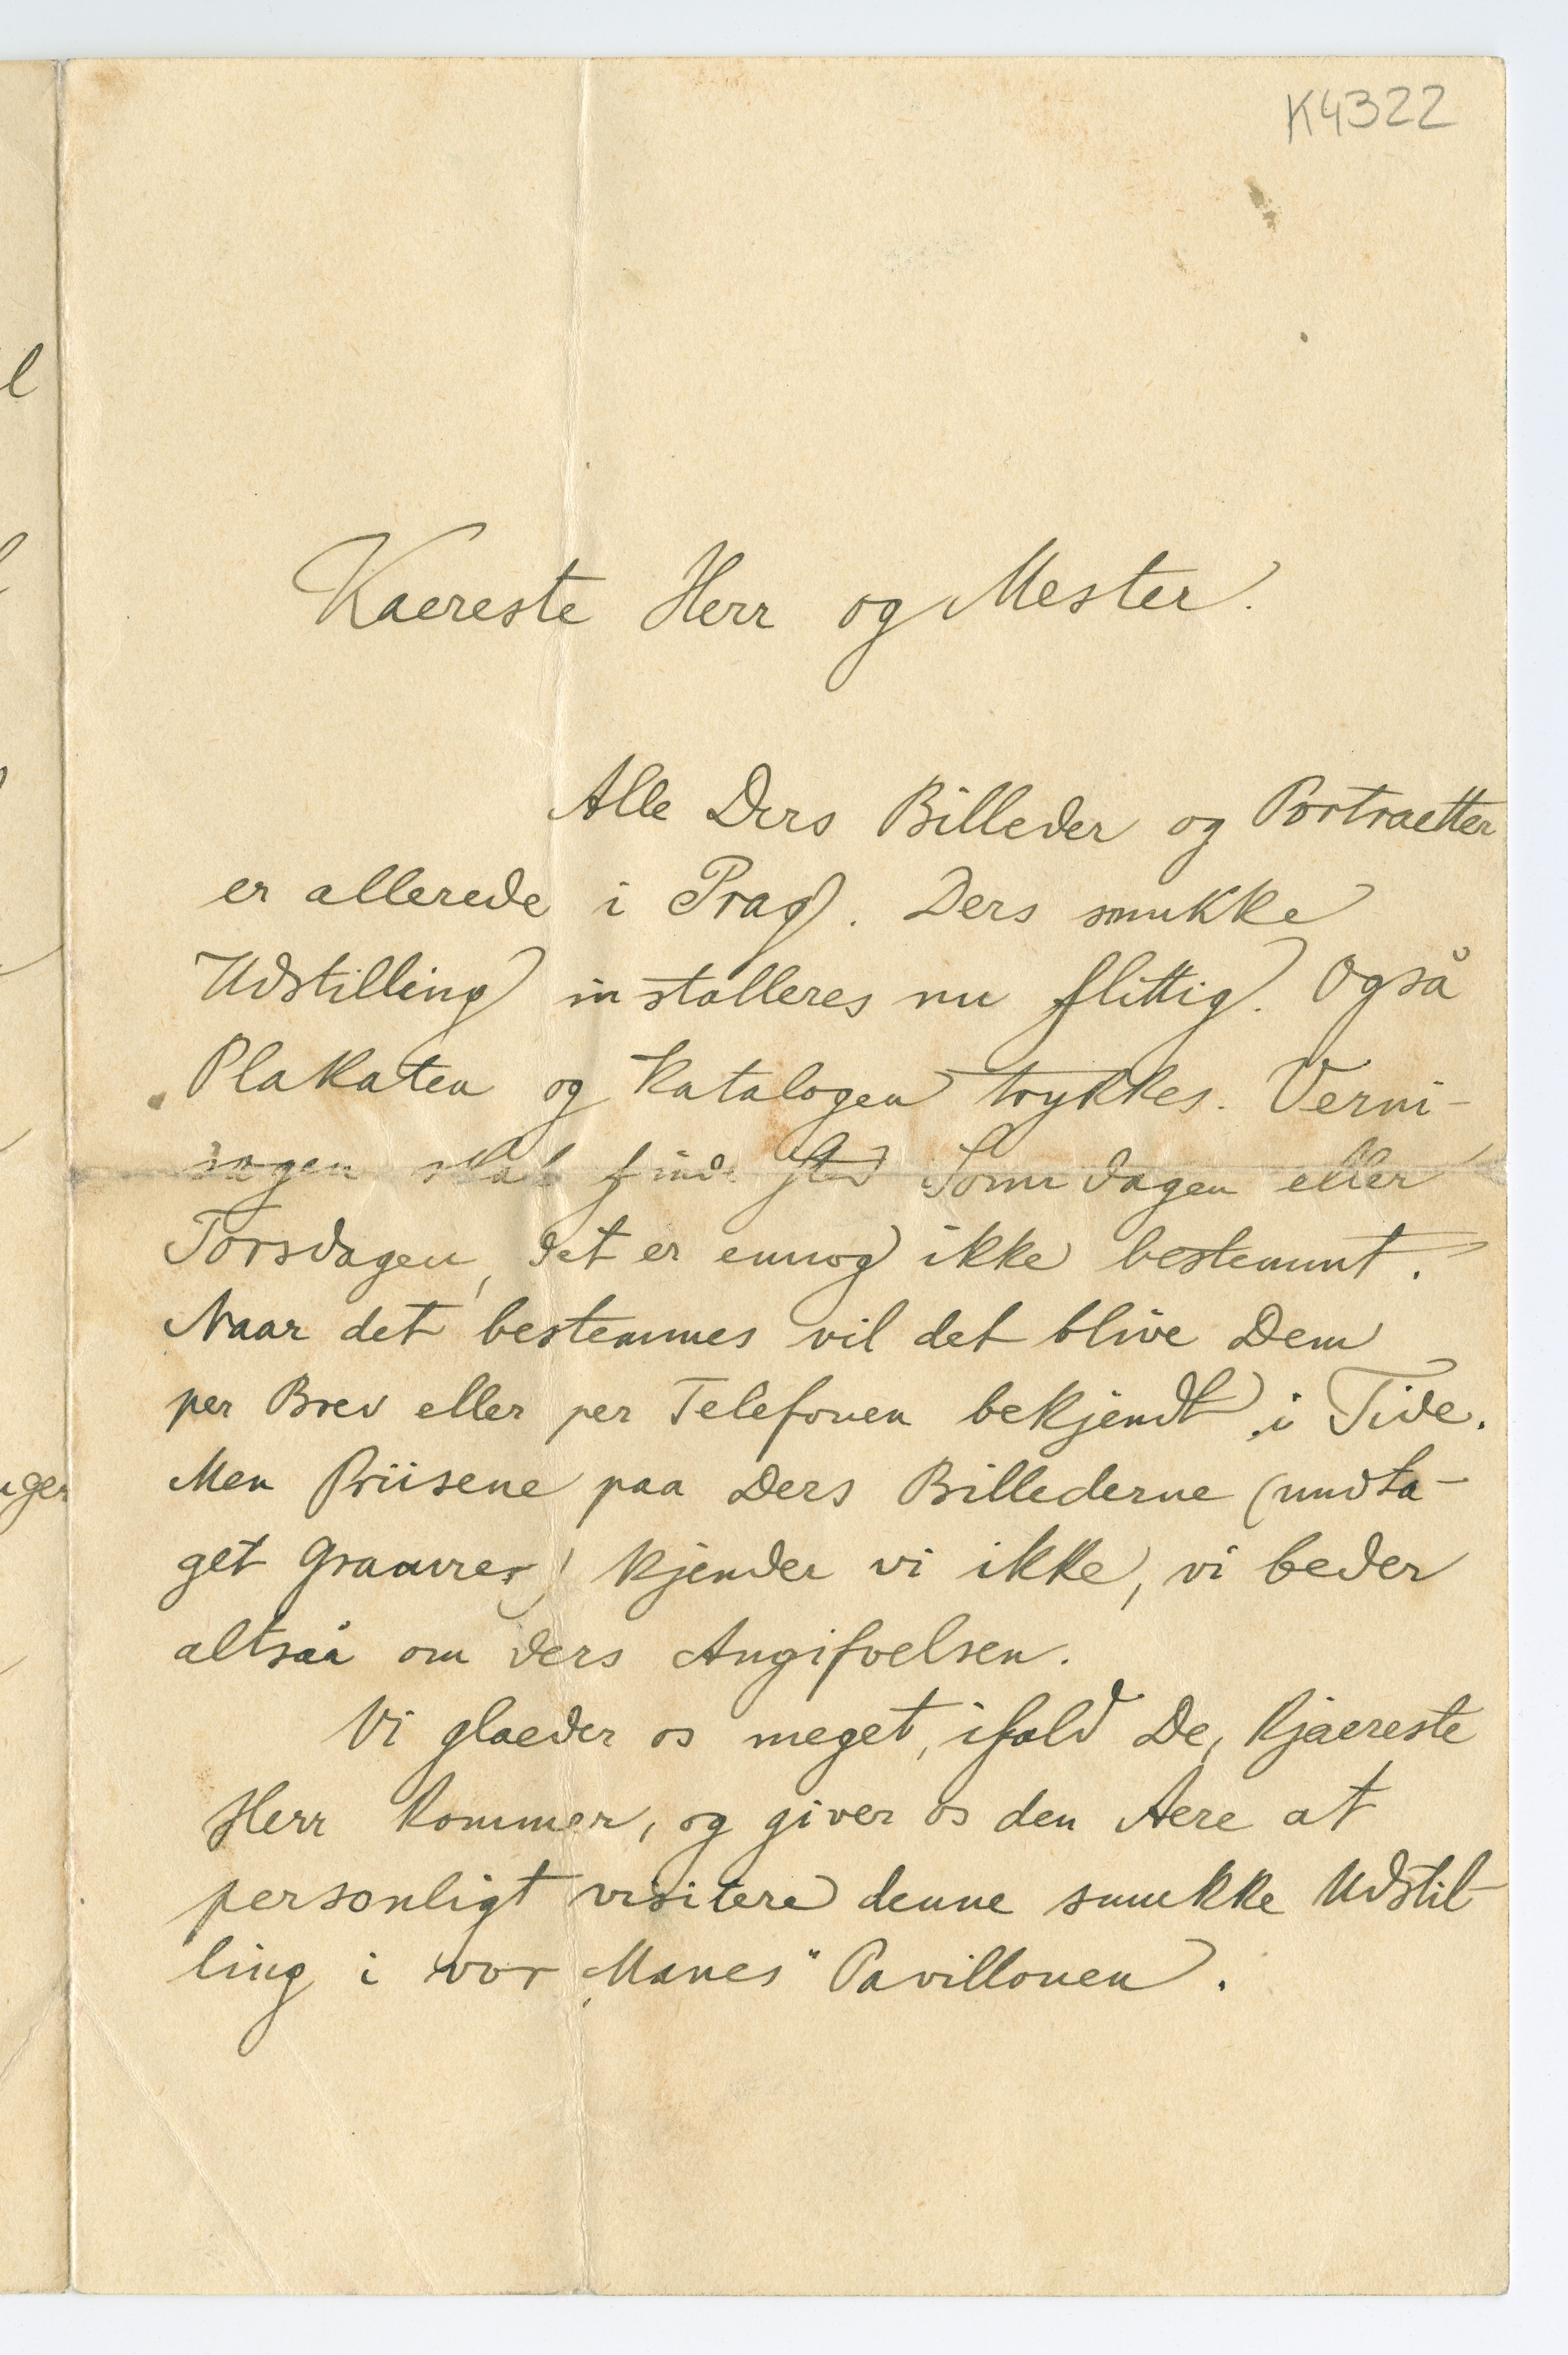 K4322
Kaereste Herr og Mester.
Alle Ders Billeder og Portraetter
er allerede i Prag. Ders smukke
Udstilling installeres nu flittig. Også
Plakaten og Katalogen trykkes. Verni-
sagen skal finde sted Sonndagen eller
Torsdagen, det er ennog ikke bestemmt.
Naar det bestemmes vil det blive Dem
per Brev eller per Telefonen bekjendt i Tide.
Men Priisene paa Ders Billederne (undta-
get Graavrer) kjender vi ikke, vi beder
altsaå om ders Angifvelsen.
Vi glaeder os meget, ifald De, kjaereste
Herr kommer, og giver os den Aere at
personligt visitere denne smukke Udstil-
ling i vor „Manes" Pavillonen.